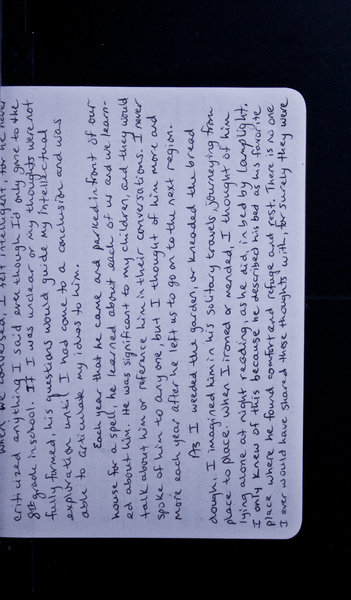 when we conversed, I felt intelligent, for he never
criticized anything I said even though I'd only gone to the
8th grade in school. If I was unclear or my thoughts were not
fully formed, his questions would guide my intellectual
exploration until I had come to a conclusion and was
able to articulate my ideas to him.
Each year that he came and parked in front of our
house for a spell, he learned about each of us and we learn-
ed about him. He was significant to my children, and they would
talk about him or reference him in their conversations. I never
spoke of him to any one, but I thought of him more and
more each year after he left us to go on to the next region.
As I weeded the garden or kneaded the bread
dough, I imagined him in his solitary travels, journeying from
place to place. When I ironed or mended, I thought of him
lying alone at night reading as he did, in bed by lamplight.
I only knew of this because he described his bed as his favorite
place where he found comfort and refuge and rest. There is no one
I ever would have shared these thoughts with, for surely they were